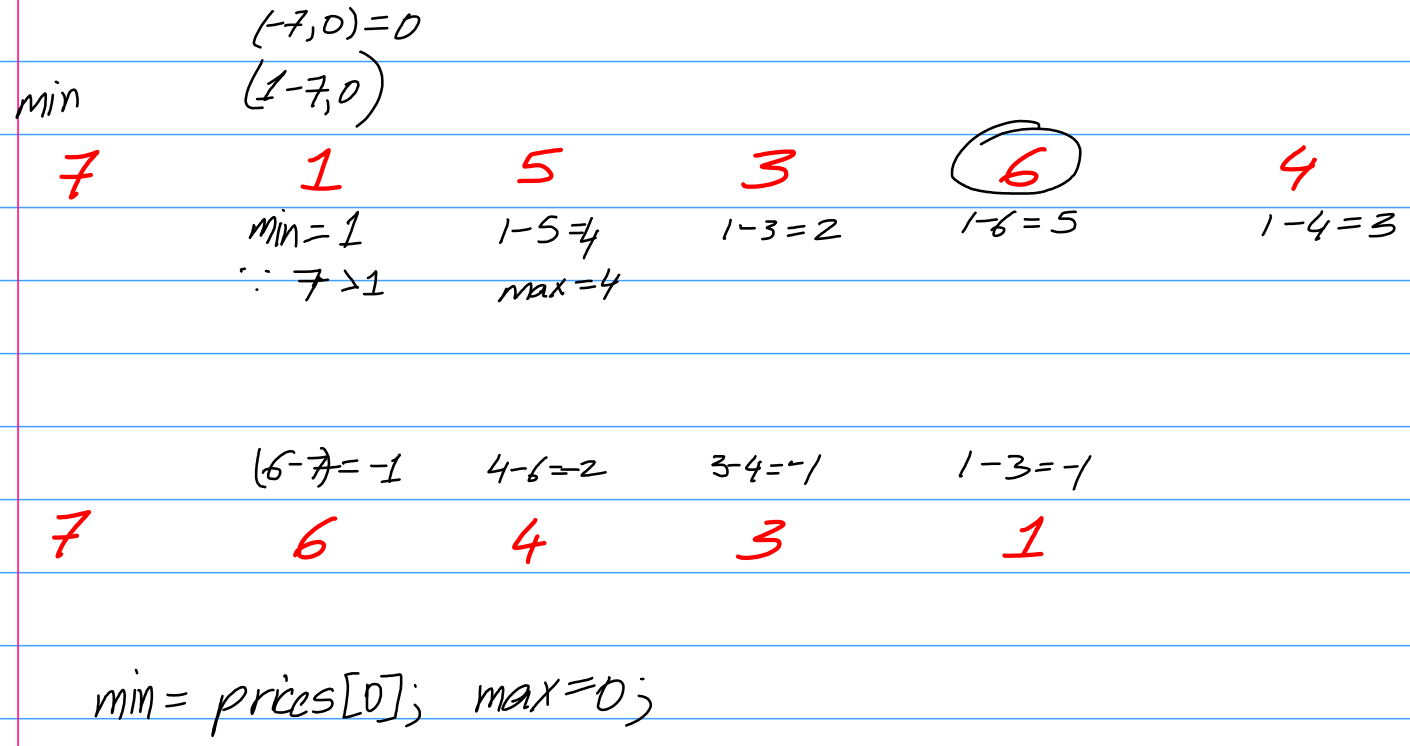 (-7,0)=0
(1-7,0)
min
7 1 5 3 6 4
min=1 1-5=4 1-3=2 1-6=5 1-4=3
∵ 7>1 max=4
(6-7)=-1 4-6=-2 3-4=-1 1-3=-1
7 6 4 3 1
min= prices[0]; max=0;